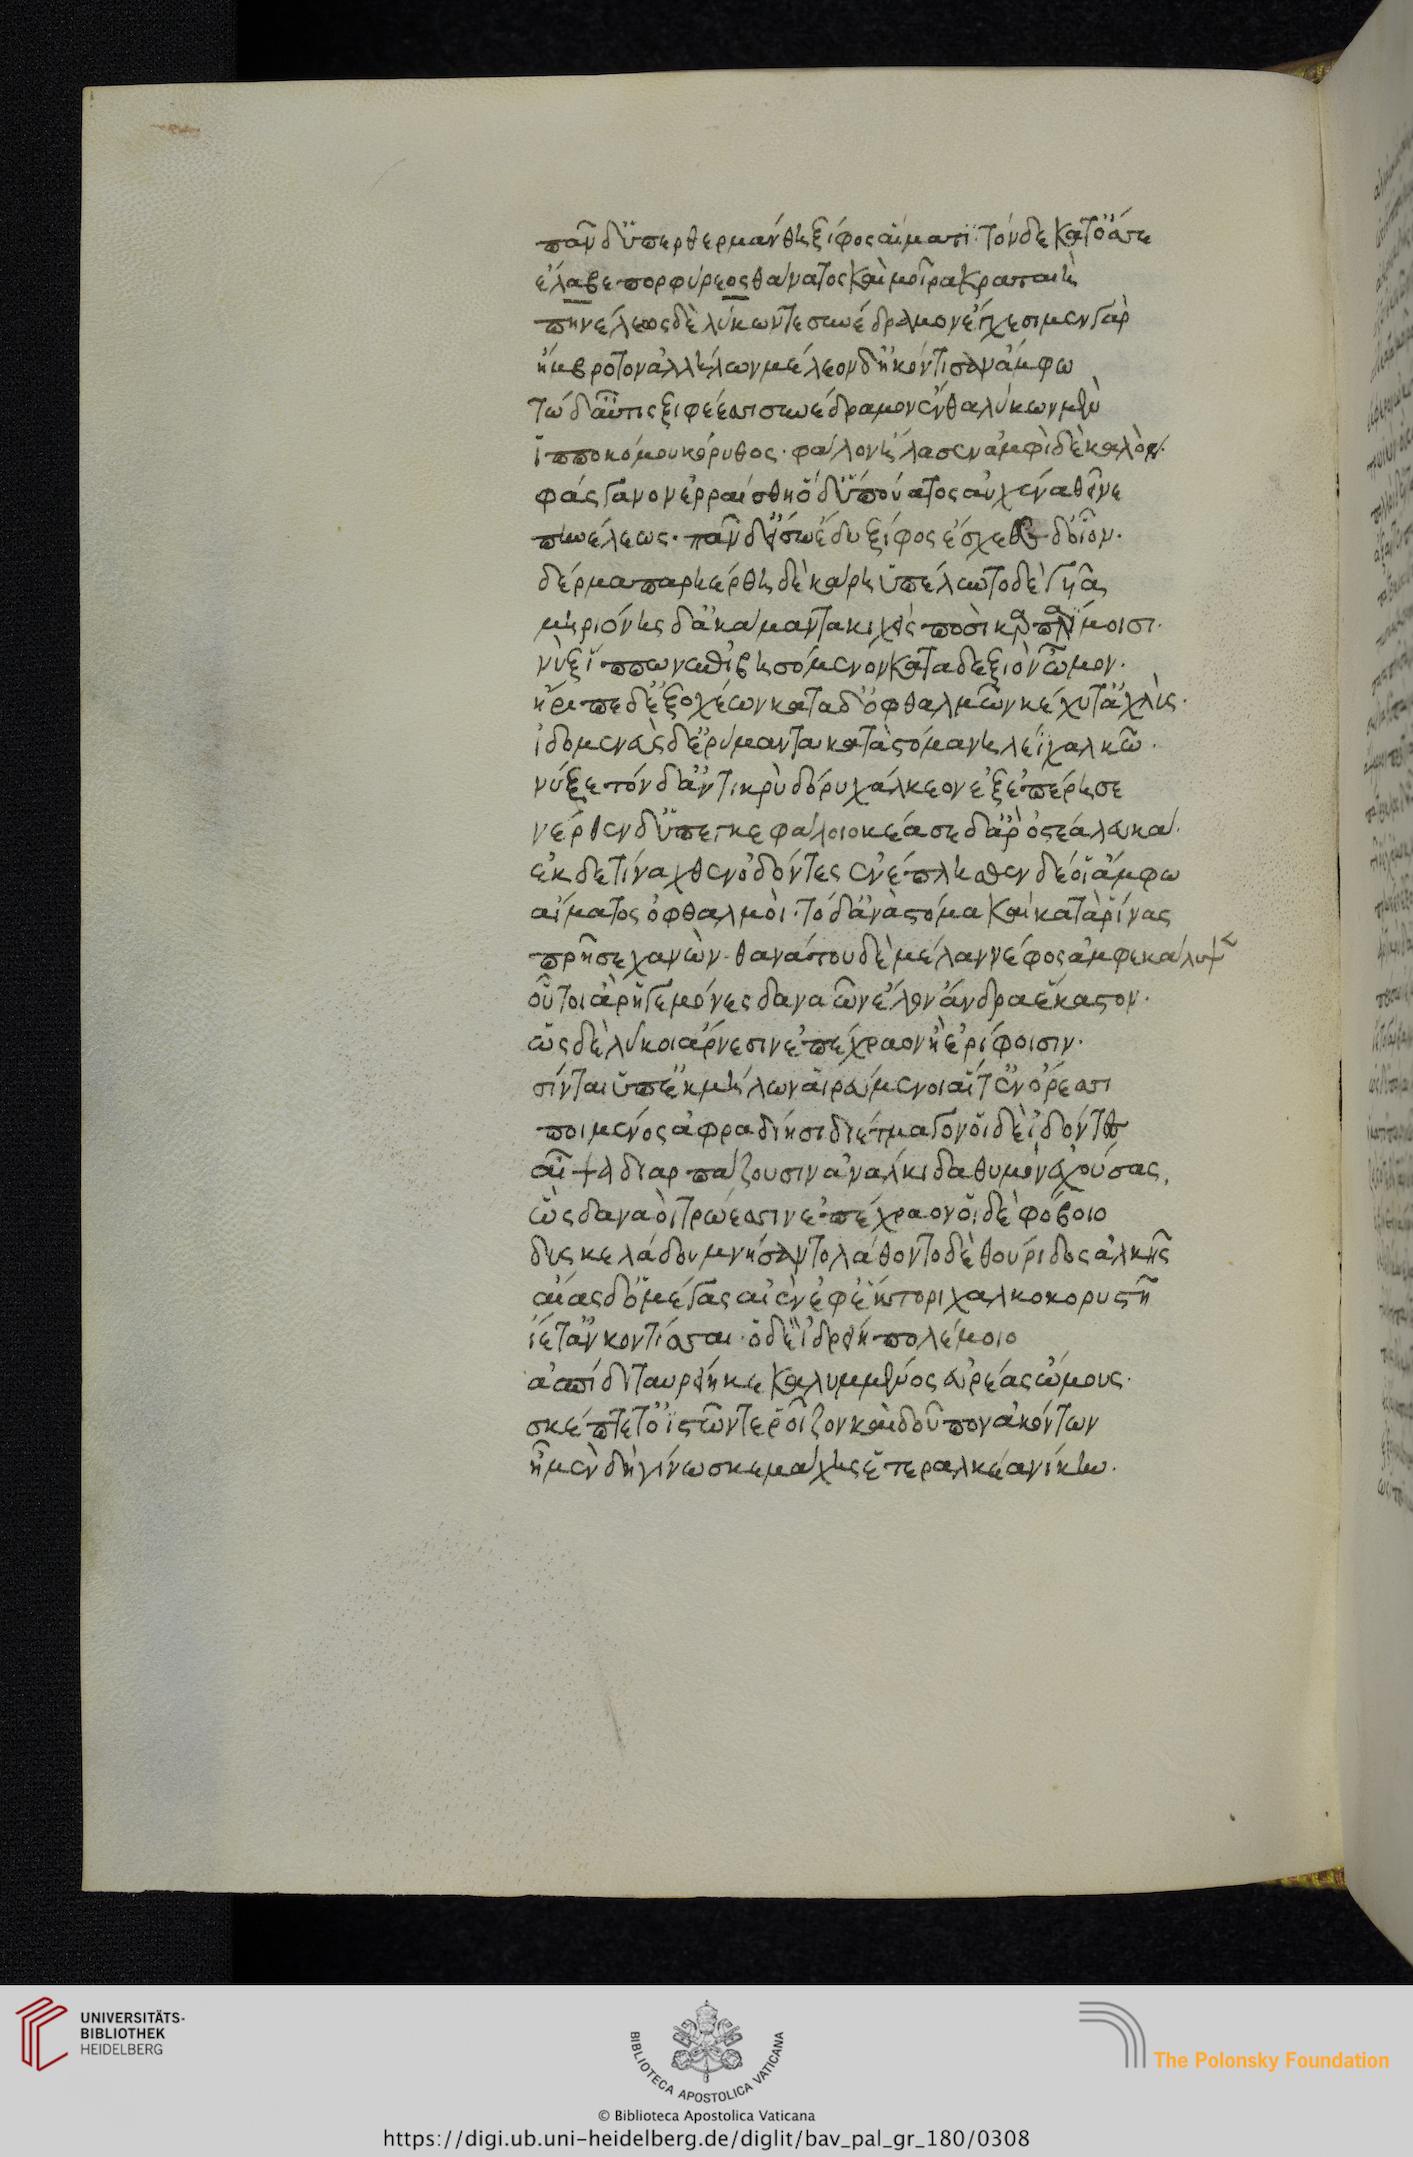 πᾶν δ' ὑπερθερμάνθη ξίφος αἵματι· τὸν δὲ κατ' ὄσσε
ἔλαβε πορφύρεος θάνατος καὶ μοῖρα κραταιὴ
πηνέλεως δὲ λύκων τε συνέδραμον ἔγχεσι μὲν γὰρ
ἤμβροτον ἀλλήλων μέλεον δ' ἠκόντισαν ἄμφω
τὼ δ' αὖτις ξιφέεσσι συνέδραμον ἔνθα λύκων μὲν
ἱπποκόμου κόρυθος· φάλον ἤλασεν ἀμφὶ δὲ καλὸν
φάσγανον ἐρραίσθη ὁ δ' ὑπ' ούατος αυχένα θεῖνε
πηνέλεως· πᾶν δ' εἴσω ἔδυ ξίφος ἔσχεθε δ' οἶον·
δέρμα παρηέρθη δὲ κάρη ὑπέλυντο δὲ γυῖα
μηριόνης δ' ἀκάμαντα κιχεὶς ποσὶ καρπαλίμοισι·
νύξ' ἵππων ἐπιβησόμενον κατα δεξιὸν ὦμον·
ἤριπε δ' ἐξ ὀχέων κατα δ' ὀφθαλμῶν κέχυτ' ἀχλύς·
ἰδομενεὺς δ' ἐρύμαντα κατὰ στόμα νηλέϊ χαλκῶ·
νύξε τὸ δ' ἀντικρὺ δόρυ χάλκεον ἐξεπέρησε
νέρθεν ὑπ' ἐγκεφάλοιο κέασσε δ' ἄρ' ὀστέα λευκά·
ἐκ δε τίναχθεν ὀδόντες ἐνέπλησθεν δέ οἱ ἄμφω
αἵματος ὀφθαλμοὶ· τὸ δ' ἀνὰ στόμα καὶ κατὰ ῥῖνας
πρῆσε χανὼν· θανάτου δὲ μέλαν νέφος ἀμφεκάλυψε
οὗτοι ἄρ' ἡγεμόνες δαναῶν ἕλον ἄνδρα ἕκαστον·
ὡς δὲ λύκοι ἄρνεσιν ἐπέχραον ἢ ἐρίφοισιν·
σίνται ὑπ' ἐκ μήλων αἱρεύμενοι αἵτ' ἐν ὄρεσσι
ποιμένος ἀφραδίησι διέτμαγον οἱ δὲ ἰδόντες
αἶψα διαρπάζουσιν ἀνάλκιδα θυμὸν ἐχούσας,
ὣς δαναοὶ τρώεσσιν ἐπέχραον οἱ δὲ φόβοιο
δυσκελάδου μνήσαντο λάθοντο δὲ θούριδος ἀλκῆς
αἴας δ' ὁ μέγας αἰὲν ἐφ' ἕκτορι χαλκοκορυστῆ
ἵετ' ἀκοντίσσαι· ὁ δὲ ἰδρείη πολέμοιο
ἀσπίδι ταυρείη κεκαλυμμένος εὐρέας ὤμους·
σκέπτετ' ὀϊστῶν τε ῥοῖζον καὶ δοῦπον ἀκόντων
ἦ μὲν δὴ γίνωσκε μάχης ἑτεραλκέα νίκην·
UNIVERSITÄTS-
BIBLIOTHEK
HEIDELBERG
BIBLIOTECA APOSTOLICA VATICANA
© Biblioteca Apostolica Vaticana
The Polonsky Foundation
https://digi.ub.uni-heidelberg.de/diglit/bav_pal_gr_180/0308